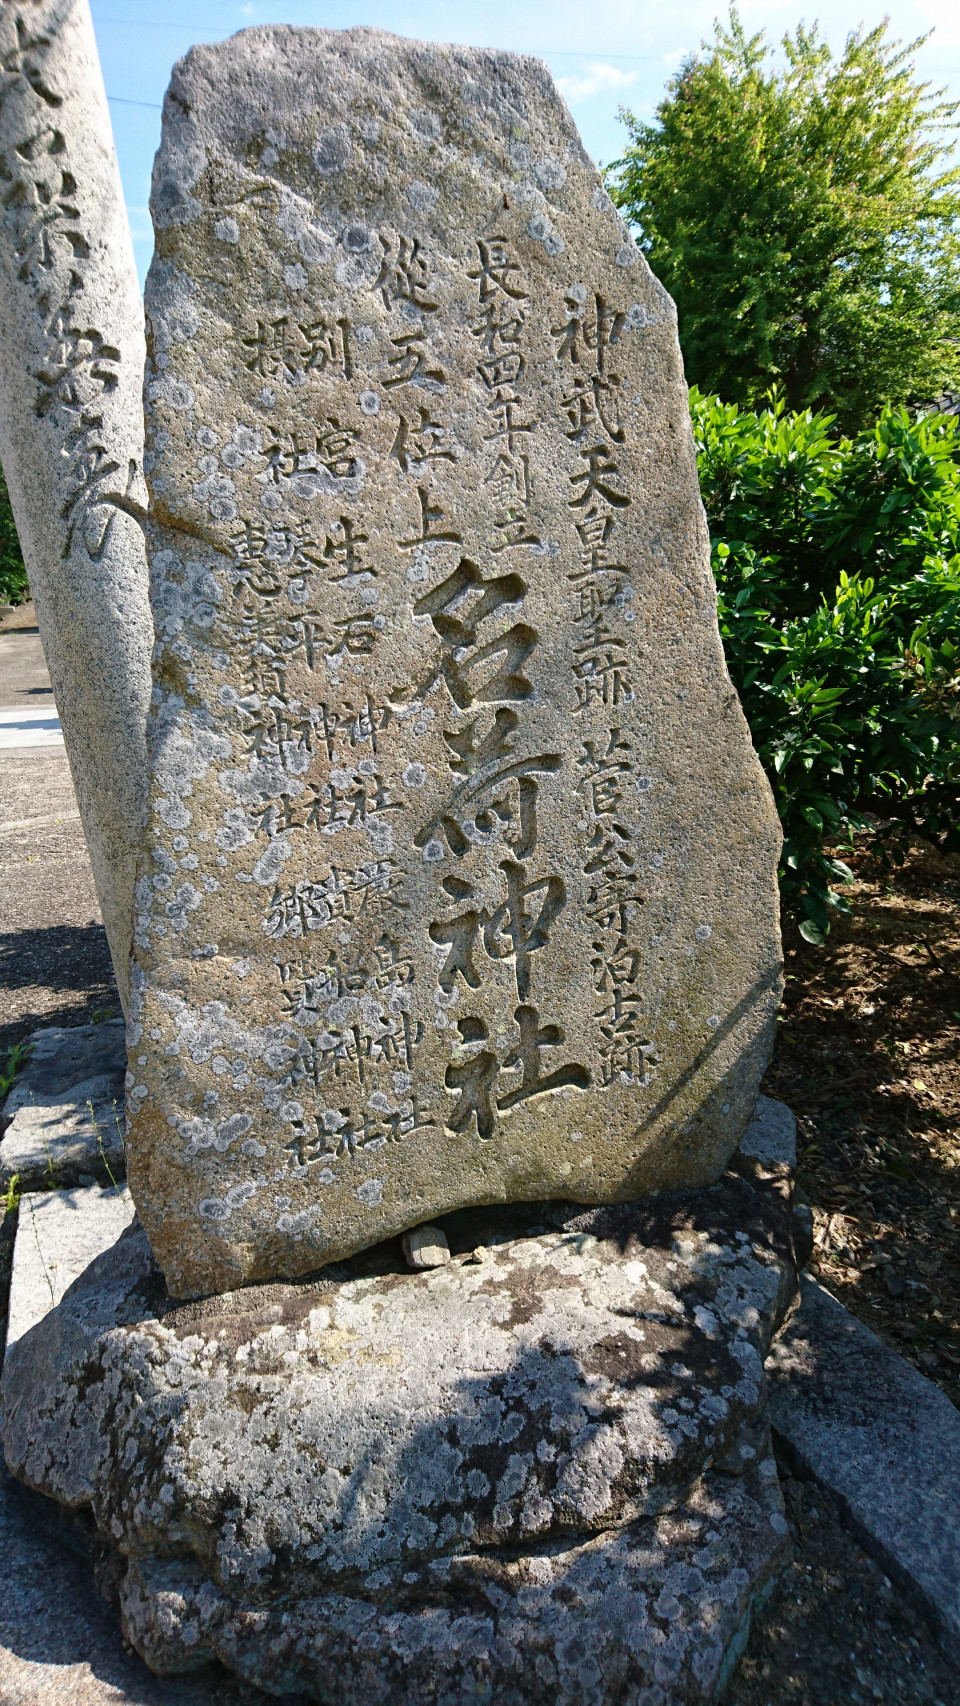 神武天皇聖跡 菅公寄泊古跡
長和四年創立
從五位上 名荷神社
別宮 生石神社 厳島神社
摂社 琴平神社 貴船神社
恵美須神社 郷賢神社